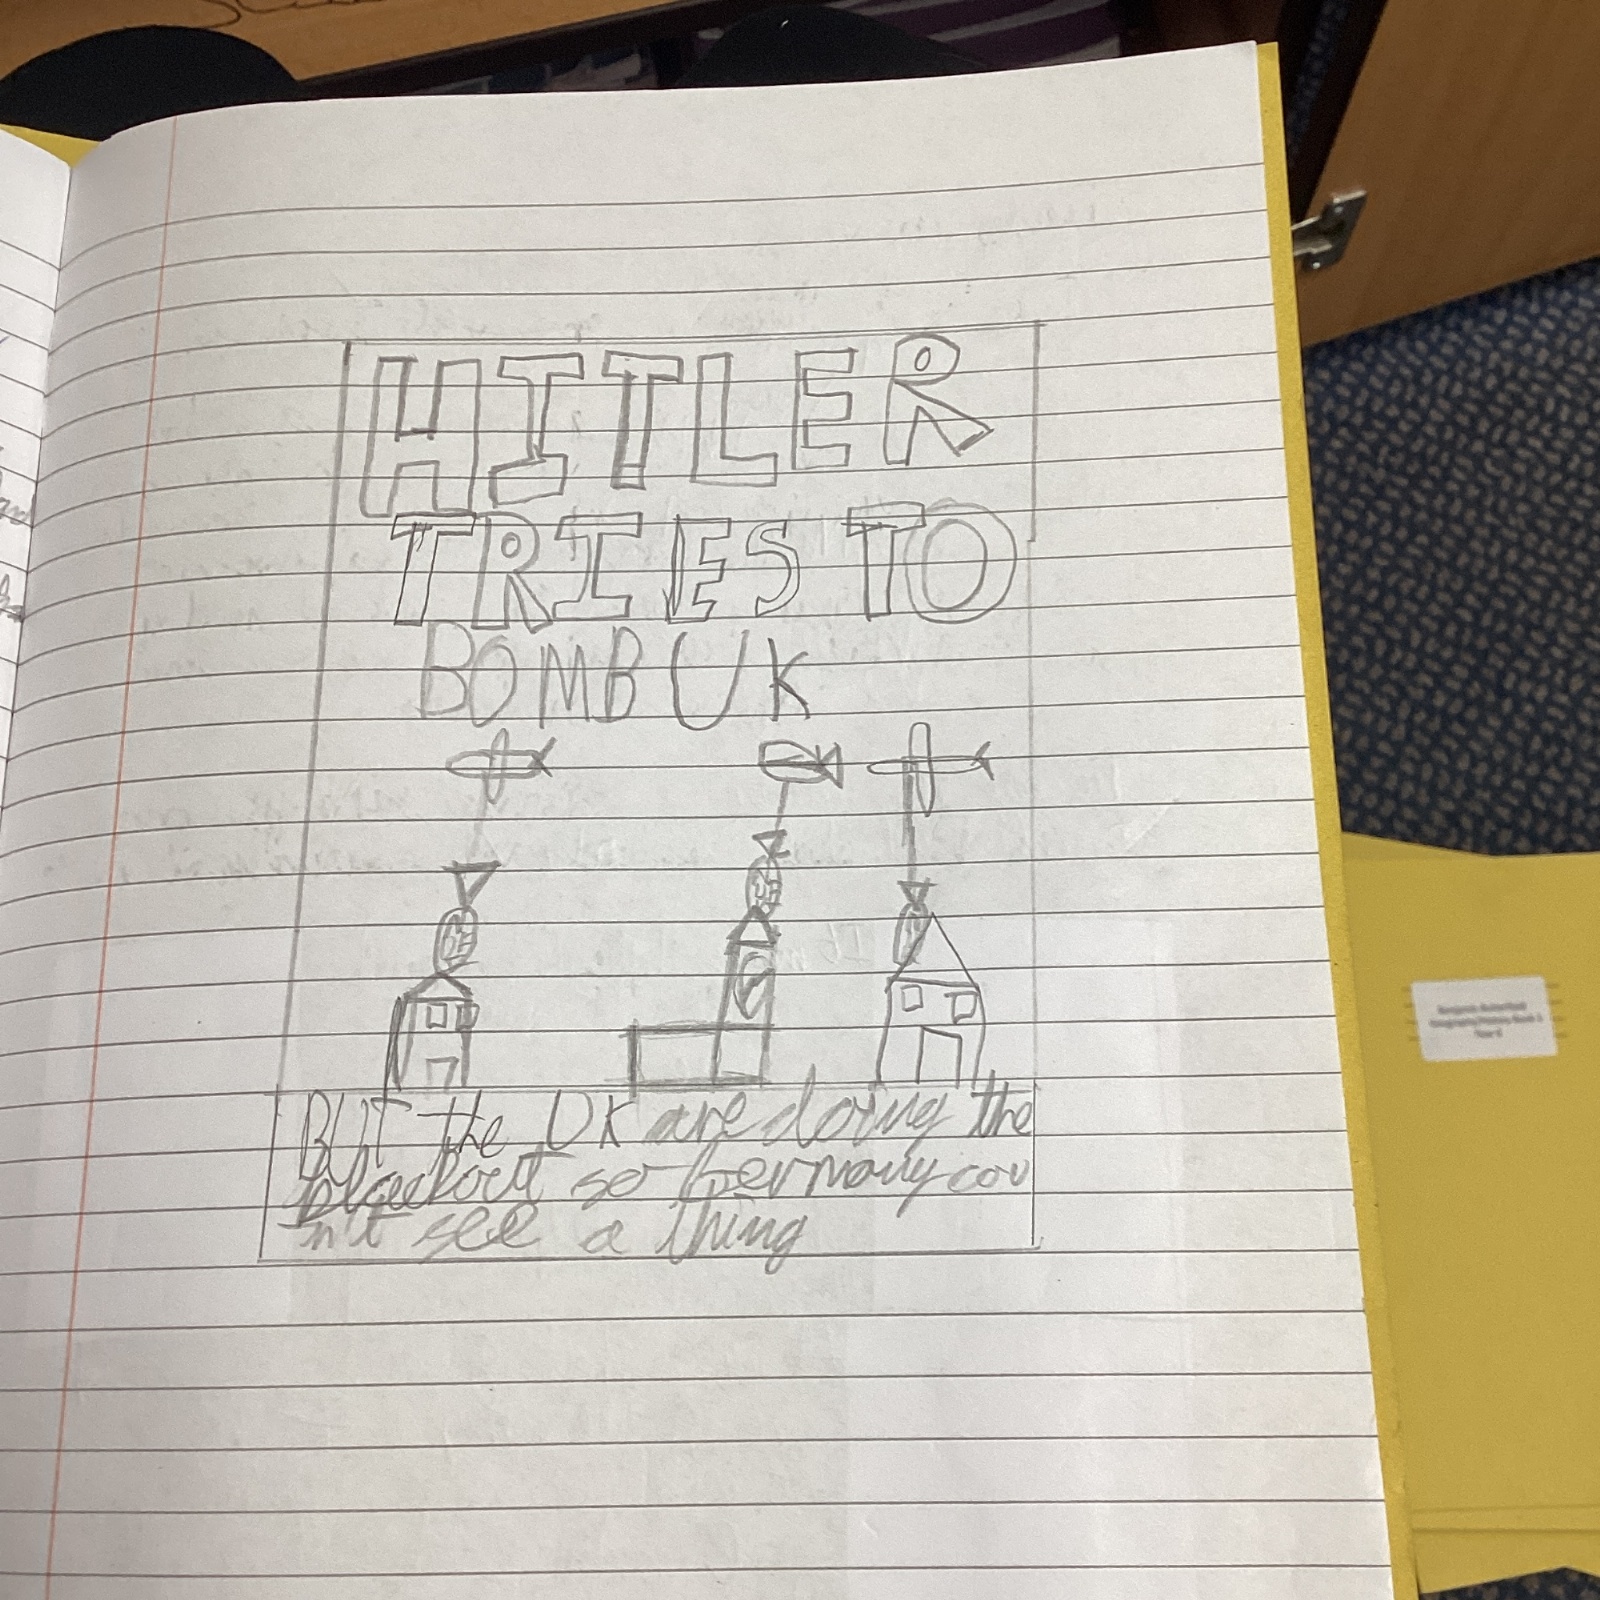 HITLER
TRIES TO
BOMB UK
BUt the UK are doing the
blackout so Germany cou
n't see a thing